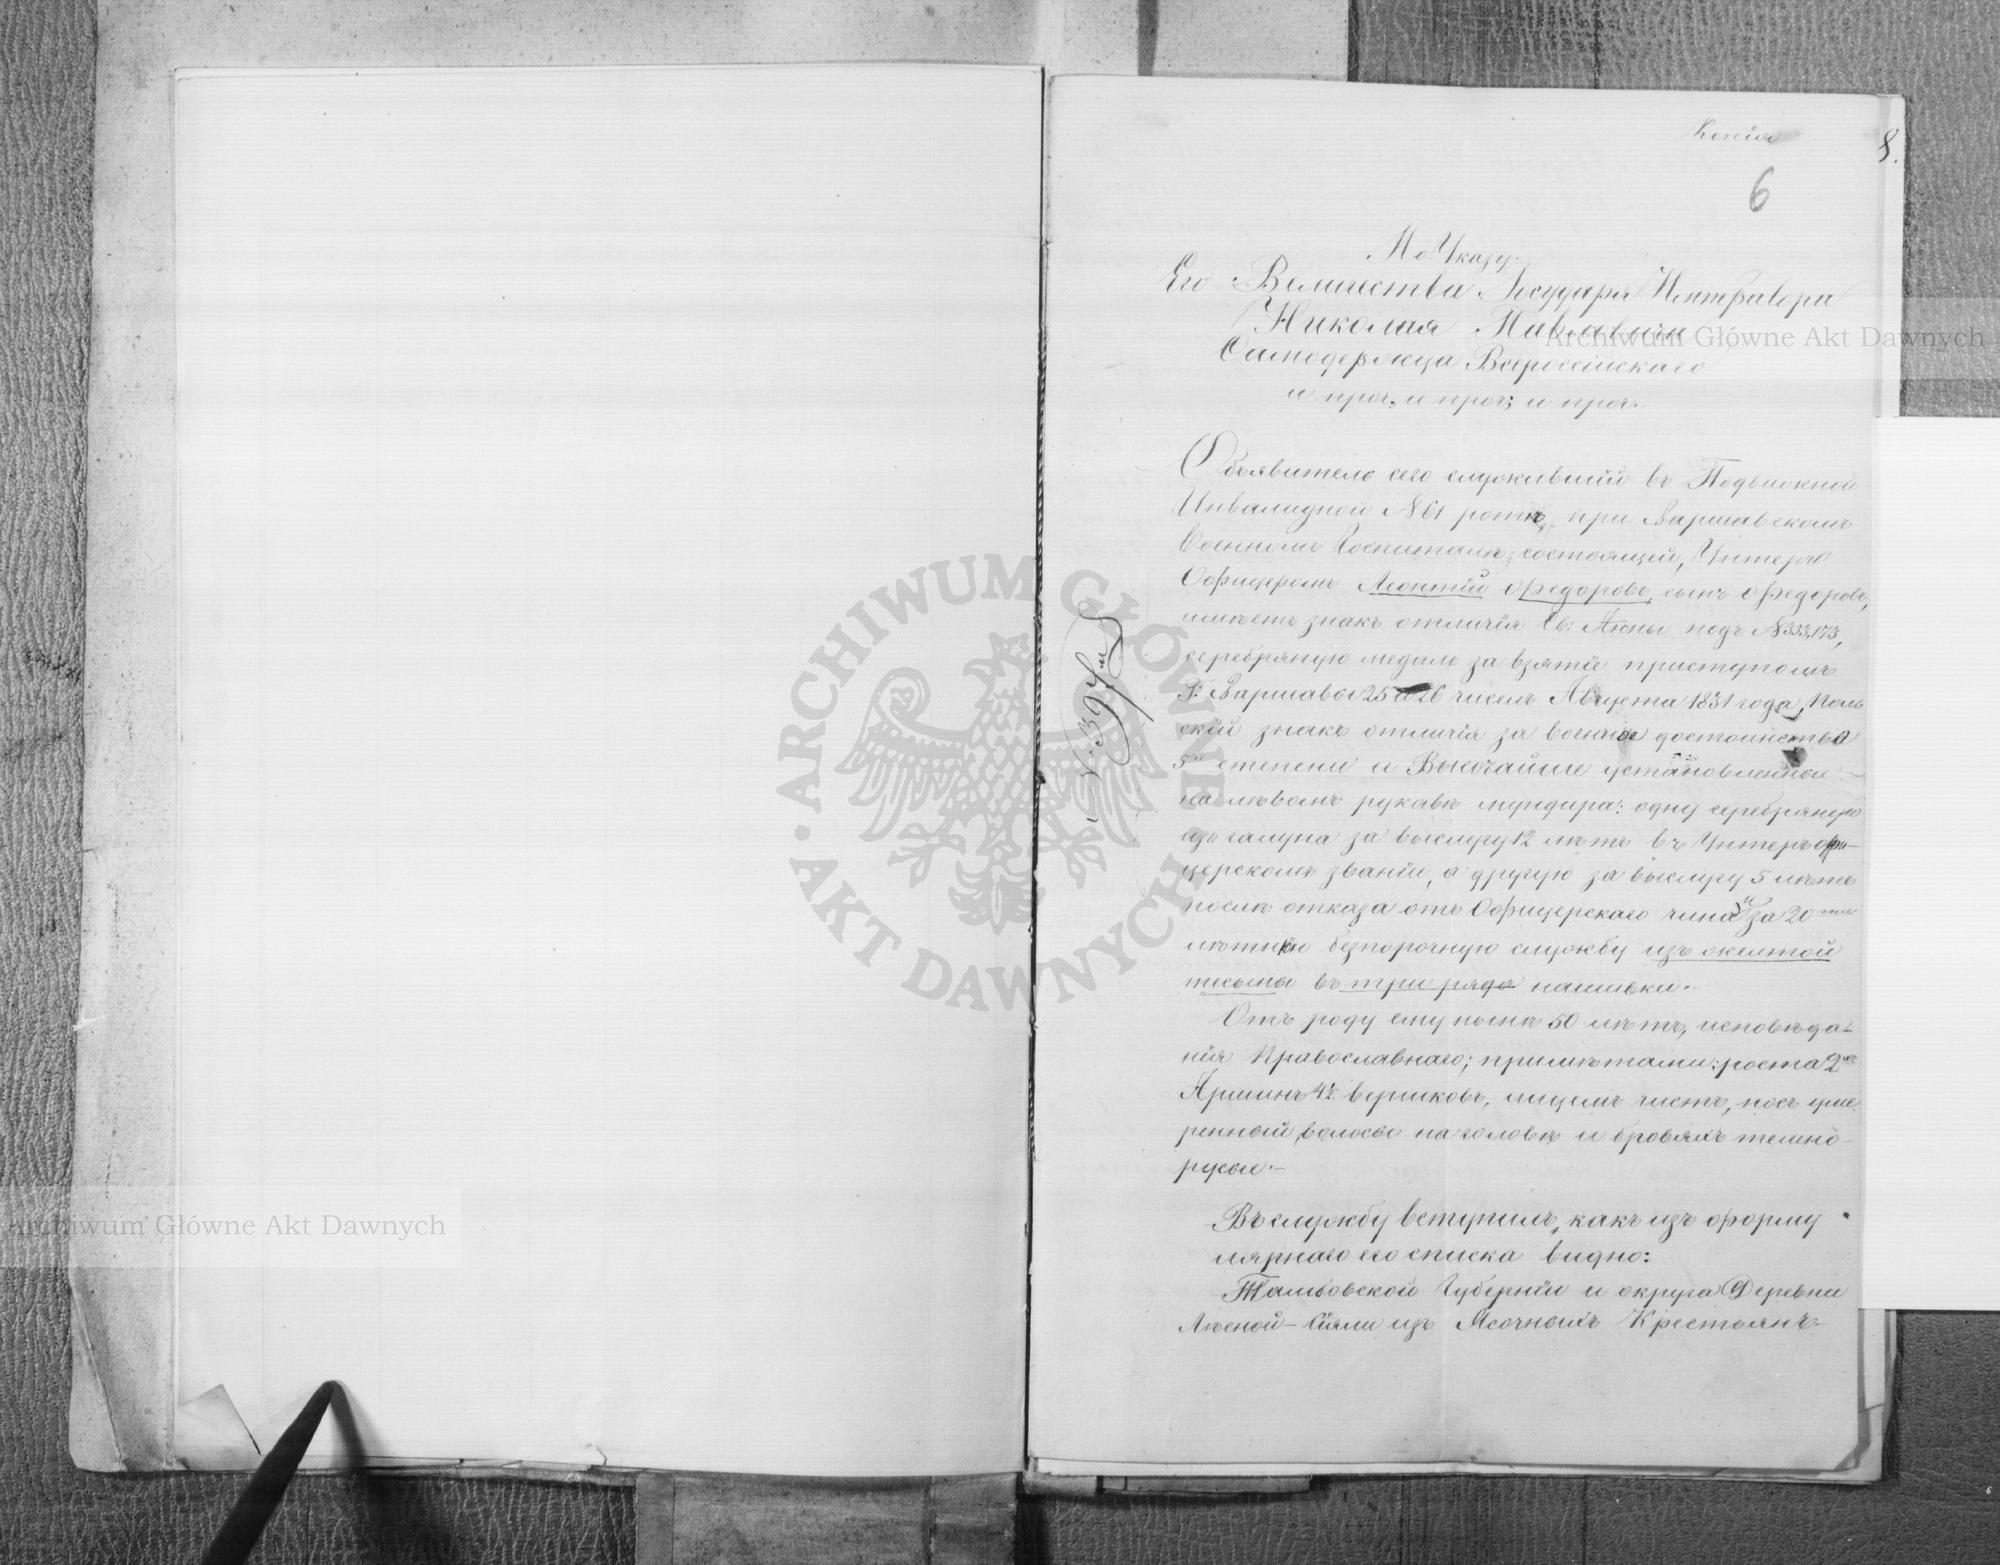 Копія
8.
6
По Указу
Его Величества Государя Императора
Николая Павловича
Самодержца Всероссійскаго
и проч; и проч; и проч.
Объявитель сего служившій въ Подвижной
Инвалидной №61 ротѣ, при Варшавскомъ
Военномъ Госпиталѣ состоящей, Унтеръ
Офицеромъ Леонтій Федоровъ, сынъ Федоровъ,
имѣетъ знакъ отличія Св: Анны подъ №333,173,
серебряную медаль за взятіе приступомъ
Г: Варшавы 25 и 26 чиселъ Августа 1831 года, Поль
скій знакъ отличія за военное достоинство
5й степени и Высочайше установленные
на лѣвомъ рукавѣ мундира: одну серебряную
изъ галуна за выслугу 12 лѣтъ въ Унтеръ офи-
церскомъ званіи, а другую за выслугу 5 лѣтъ
послѣ отказа отъ Офицерскаго чина и за 20ти
лѣтнюю безпорочную службу изъ желтой
тесьмы въ три ряда нашивки.
Отъ роду ему нынѣ 50 лѣтъ, исповѣда-
нія Православнаго; примѣтами: роста 2
Аршинъ 4½ вершковъ, лицемъ чистъ, носъ уме
ренный, волосы на головѣ и бровяхъ темно-
русые.-
Въ службу вступилъ, какъ изъ форму
лярнаго его списка видно:
Тамбовской Губерніи и округа Деревни
Лѣсной изъ Ясочныхъ Крестьянъ
Archiwum Główne Akt Dawnych
ARCHIWUM GŁÓWNE AKT DAWNYCH
Archiwum Główne Akt Dawnych